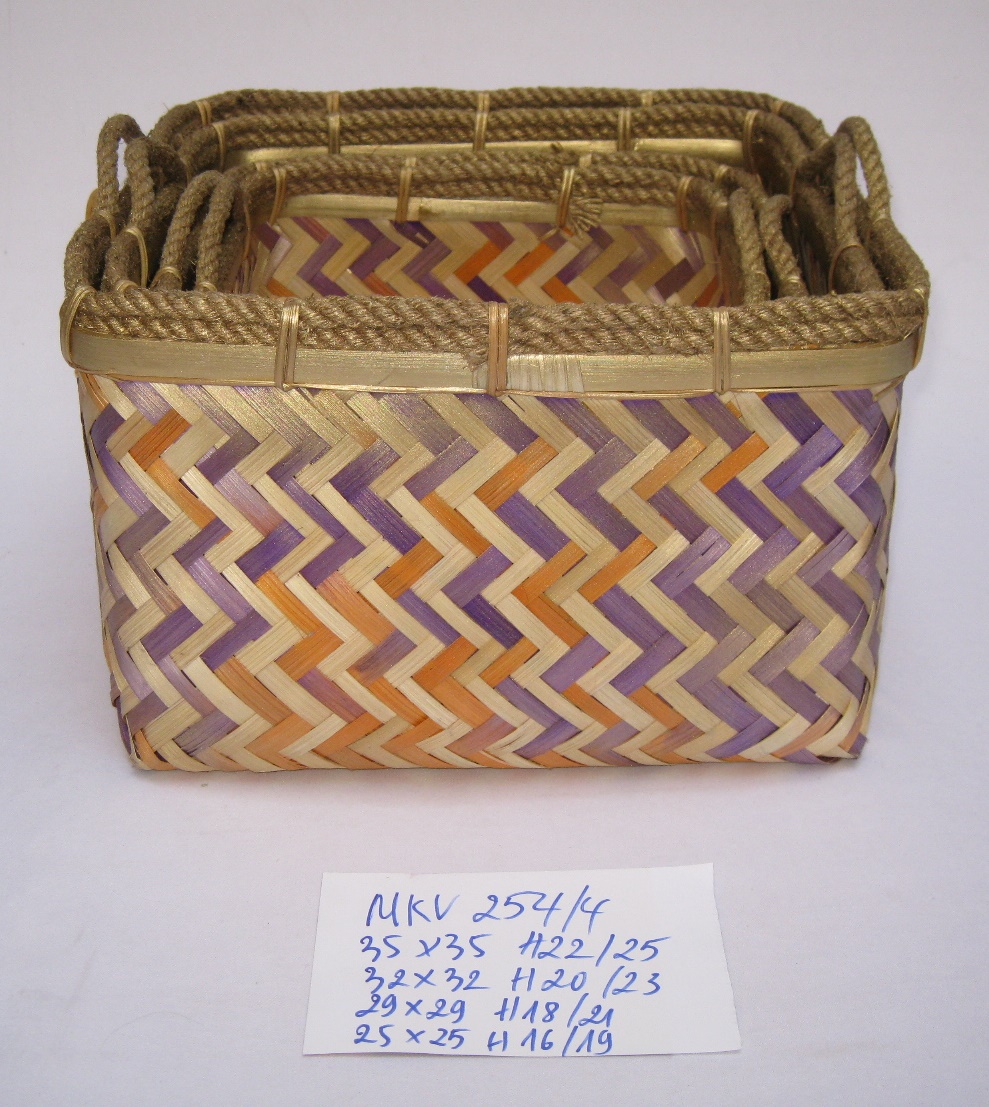 MKV 254/4
35 x 35 H22/25
32 x 32 H20/23
29 x 29 H18/21
25 x 25 H16/19